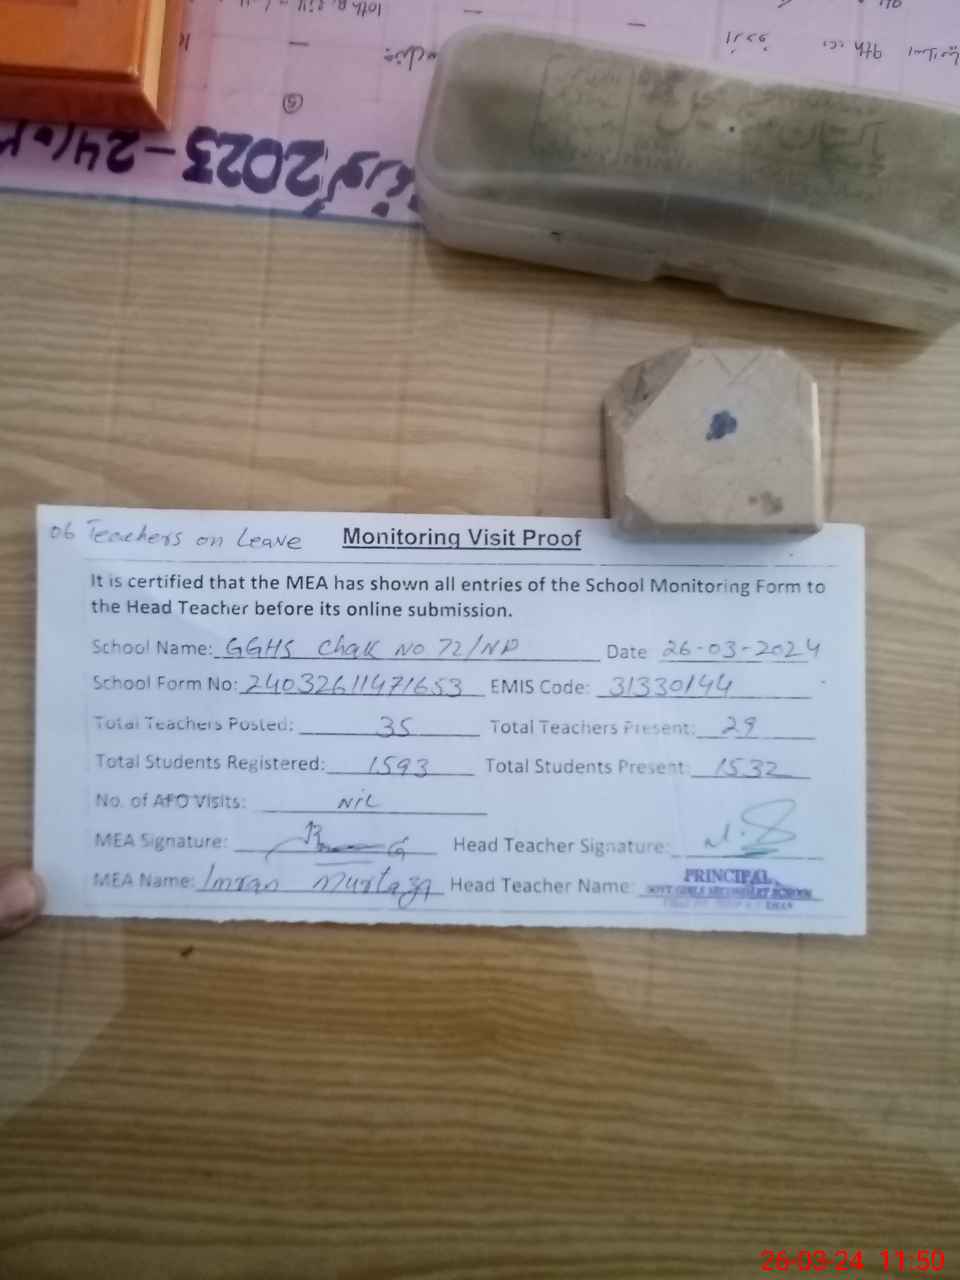 2023-24
06 Teachers on Leave Monitoring Visit Proof
It is certified that the MEA has shown all entries of the School Monitoring Form to
the Head Teacher before its online submission.
School Name: GGHS Chak No 72/NP Date 26-03-2024
School Form No: 24032611471653 EMIS Code: 31330144
Total Teachers Posted: 35 Total Teachers Present: 29
Total Students Registered: 1593 Total Students Present: 1532
No. of AFO Visits: Nil
MEA Signature: Head Teacher Signature:
MEA Name: Imran Murtaza Head Teacher Name: PRINCIPAL
GOVT GIRLS SECONDARY SCHOOL
26-03-24 11:50